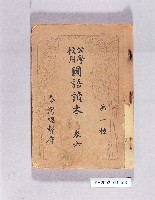 公學校用
國語讀本
卷六
第一種
台灣總督府